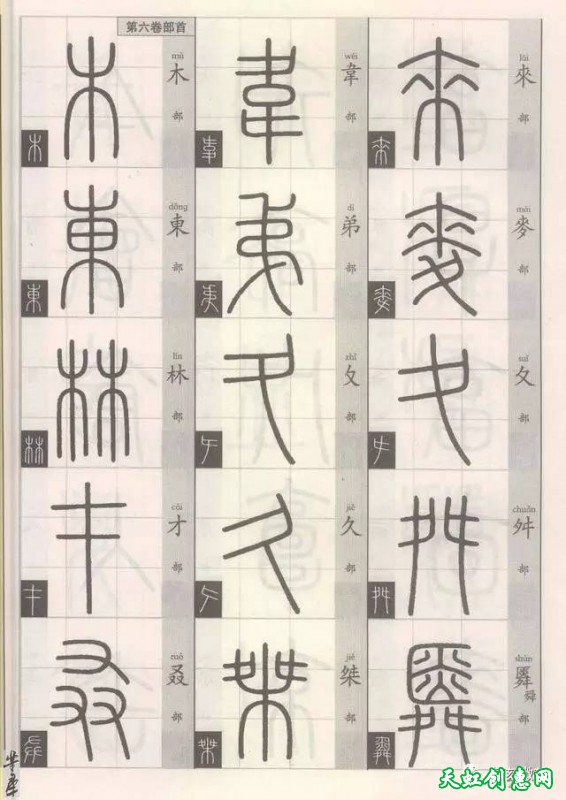 lái
來部
mài
麥部
suī
夊部
chuǎn
舛部
shùn
舜部
wéi
韋部
dì
弟部
zhǐ
夂部
久部
jié
桀部
第六卷部首
mù
木部
dōng
東部
lín
林部
cái
才部
ruò
叒部
天虹创惠网